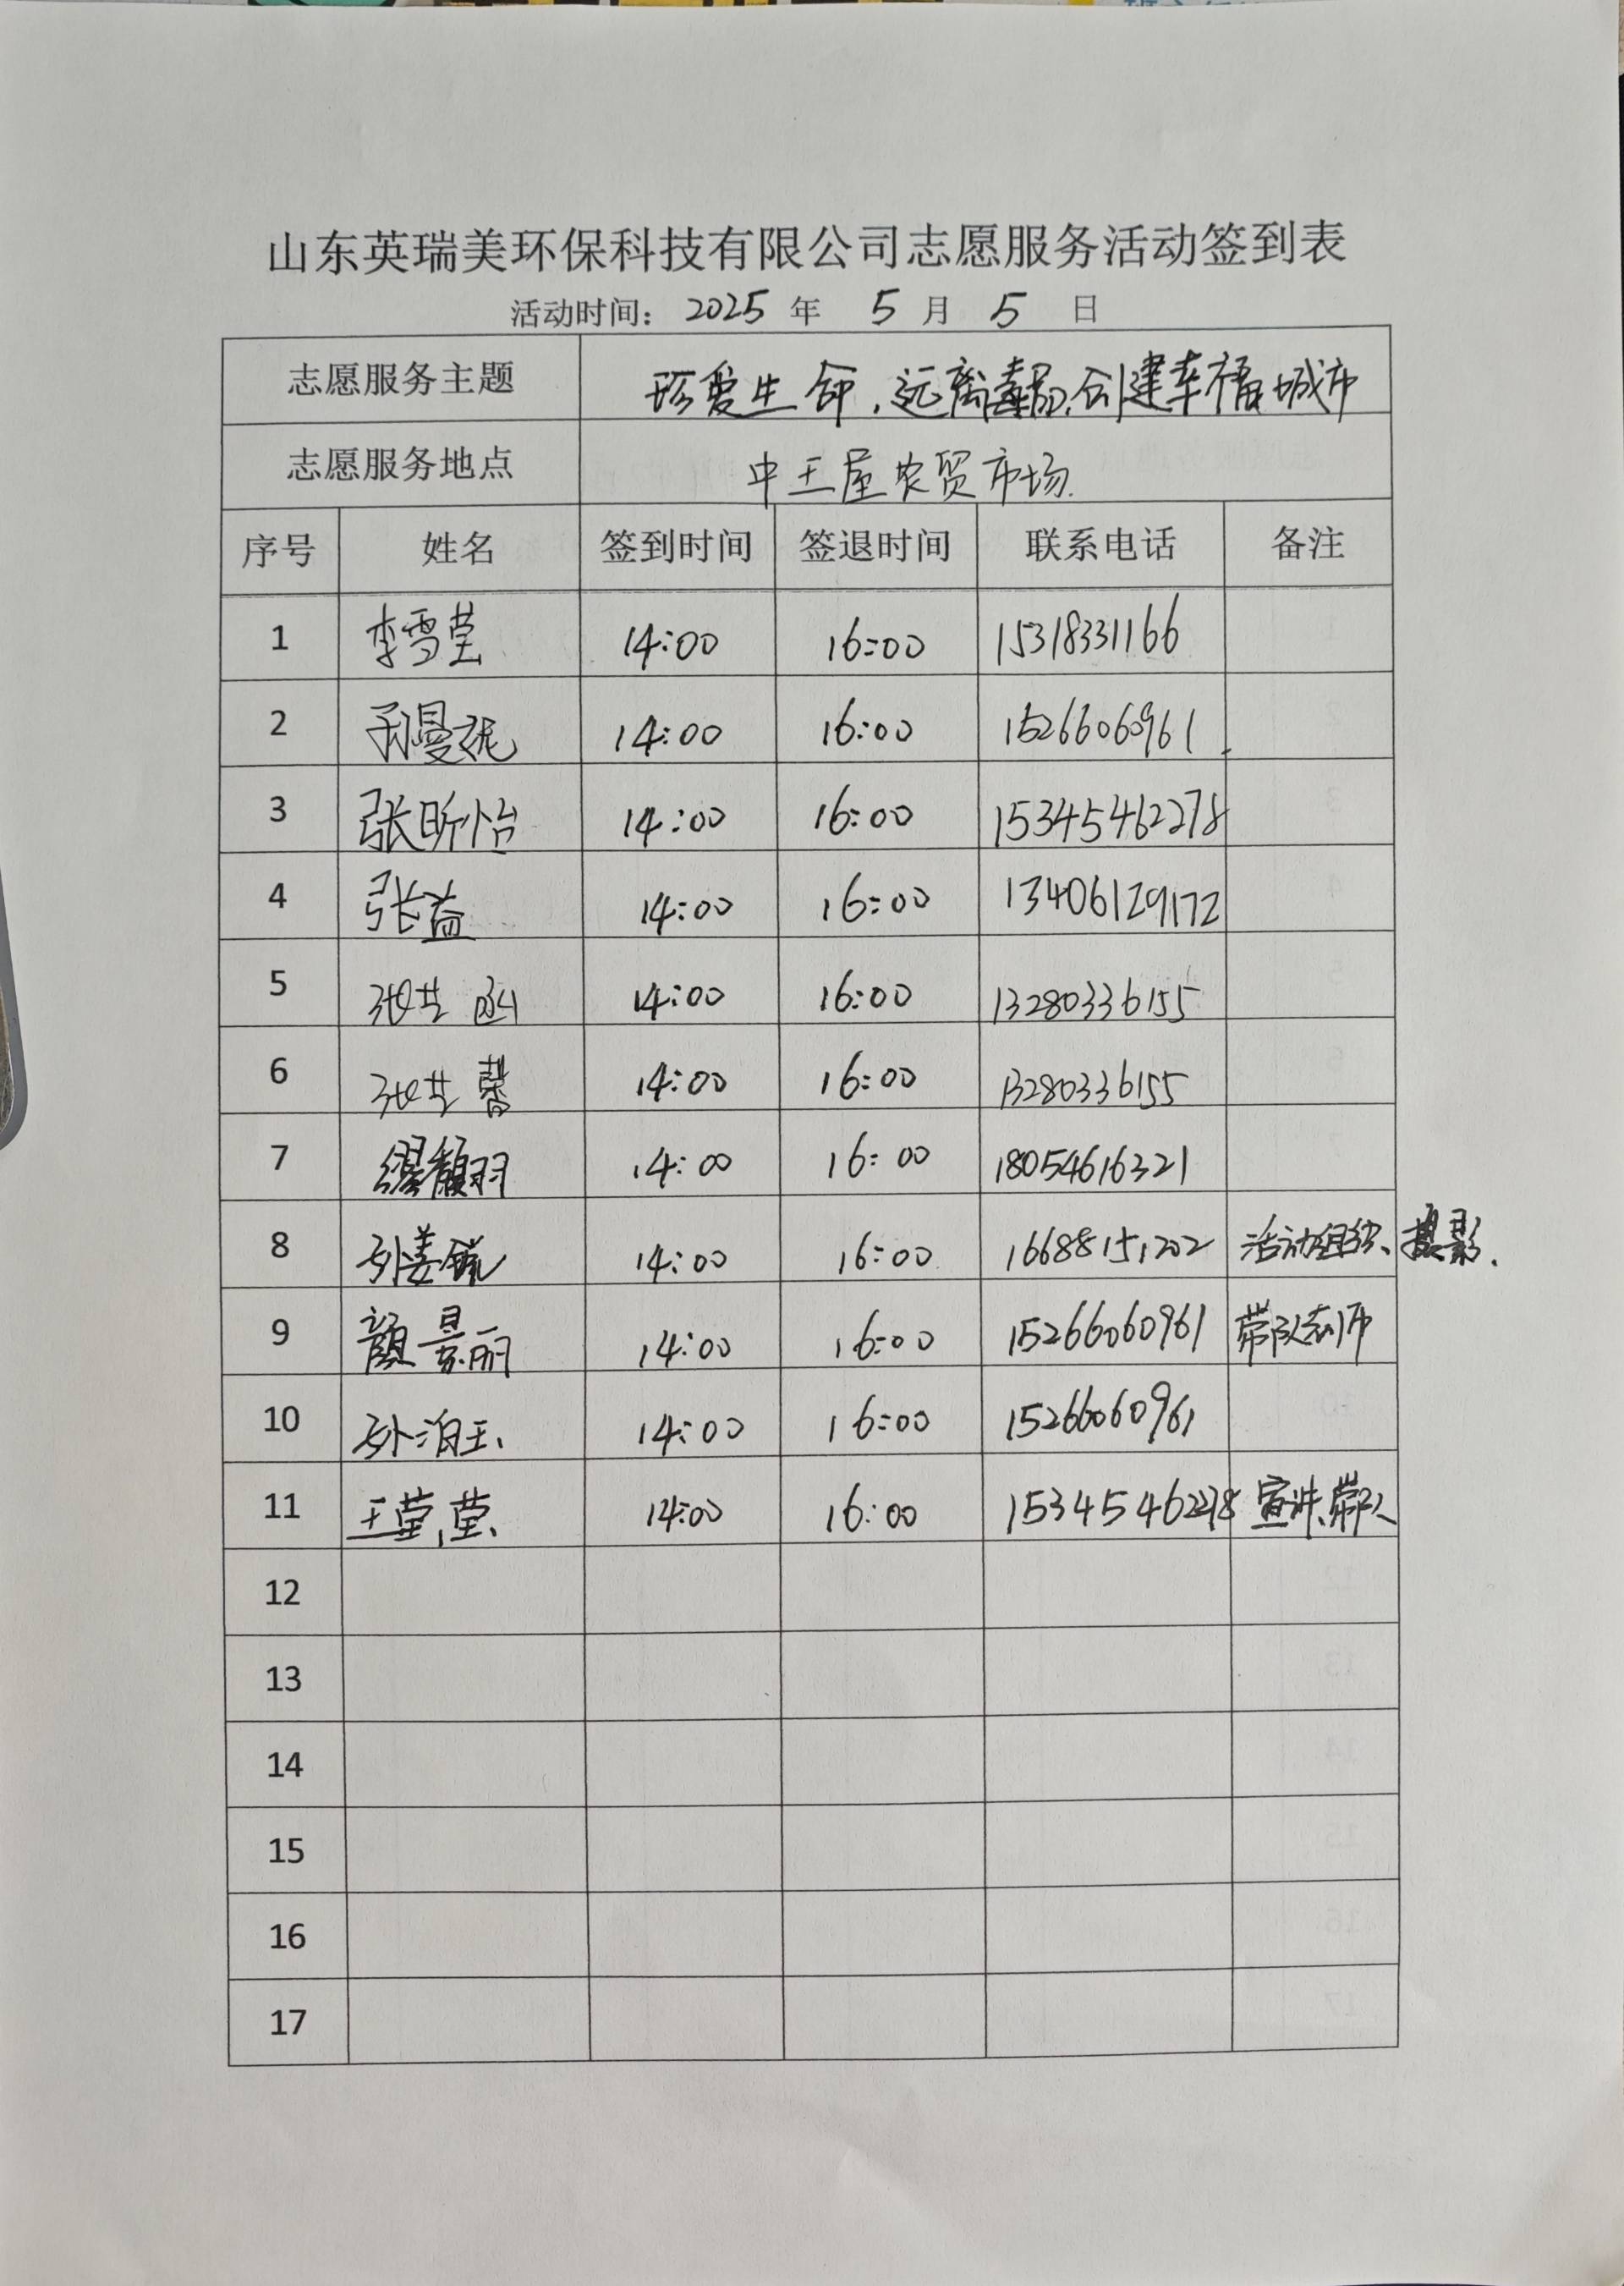 山东英瑞美环保科技有限公司志愿服务活动签到表
活动时间： 2025 年 5 月 5 日
志愿服务主题 珍爱生命，远离毒品，创建幸福城市
志愿服务地点 中王屋农贸市场
序号 姓名 签到时间 签退时间 联系电话 备注
1 李雪莹 14:00 16:00 15318331166
2 孙曼妮 14:00 16:00 15266060961
3 张昕怡 14:00 16:00 15345462278
4 张益 14:00 16:00 13406129172
5 张艺函 14:00 16:00 13280336155
6 张艺馨 14:00 16:00 13280336155
7 缪馥羽 14:00 16:00 18054616321
8 孙姜毓 14:00 16:00 16688151202 活动组织、摄影.
9 颜景丽 14:00 16:00 15266060961 带队老师
10 孙泊玉 14:00 16:00 15266060961
11 王莹莹 14:00 16:00 15345462278 宣讲、带队
12
13
14
15
16
17